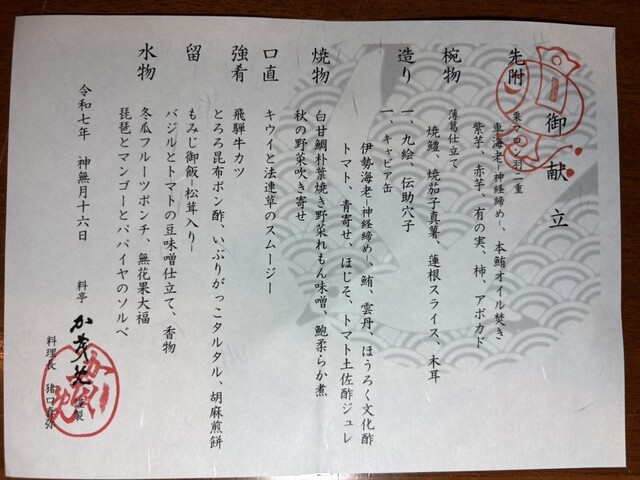 御献立
先附
栗マロン羽二重
車海老―神経締め―、本鮪オイル焚き
紫芋、赤芋、有の実、柿、アボカド
椀物
薄葛仕立て
焼鱧、焼茄子真薯、蓮根スライス、木耳
造り
一、九絵、伝助穴子
伊勢海老―神経締め―、鮪、雲丹、ほうろく文化酢
トマト、青寄せ、ほじそ、トマト土佐酢ジュレ
一、キャビア缶
焼物
白甘鯛朴葉焼き野菜れもん味噌、鮑柔らか煮
秋の野菜吹き寄せ
口直
キウイと法連草のスムージー
強肴
飛騨牛カツ
とろろ昆布ポン酢、いぶりがっこタルタル、胡麻煎餅
留
もみじ御飯―松茸入り―
バジルとトマトの豆味噌仕立て、香物
水物
冬瓜フルーツポンチ、無花果大福
琵琶とマンゴーとパパイヤのソルベ
令和七年 神無月十六日
料亭 か茂免 謹製
料理長 猪口